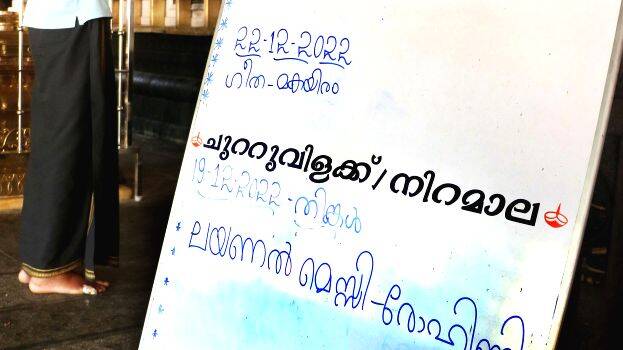 22-12-2022
ഗീത - മകയിരം
ചുററുവിളക്ക് / നിറമാല
19-12-2022 - തിങ്കൾ
* ലയണൽ മെസ്സി - രോഹിണി